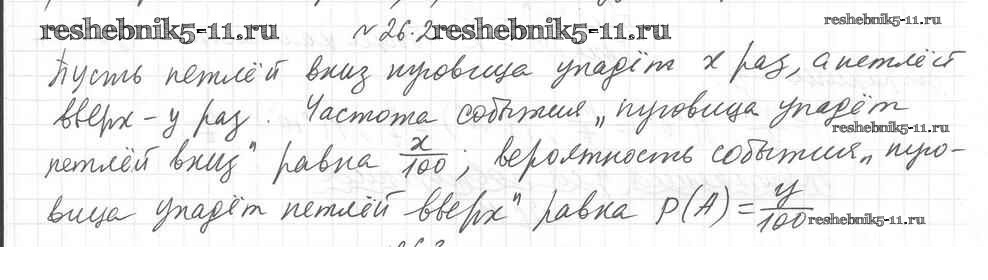 reshebnik5-11.ru № 26.2 reshebnik5-11.ru reshebnik5-11.ru
Пусть петлёй вниз пуговица упадёт x раз, а петлёй
вверх - y раз. Частота события „пуговица упадёт
reshebnik5-11.ru
петлёй вниз" равна x/100; вероятность события „пуго-
вица упадёт петлёй вверх" равна P(A) = y/100 reshebnik5-11.ru